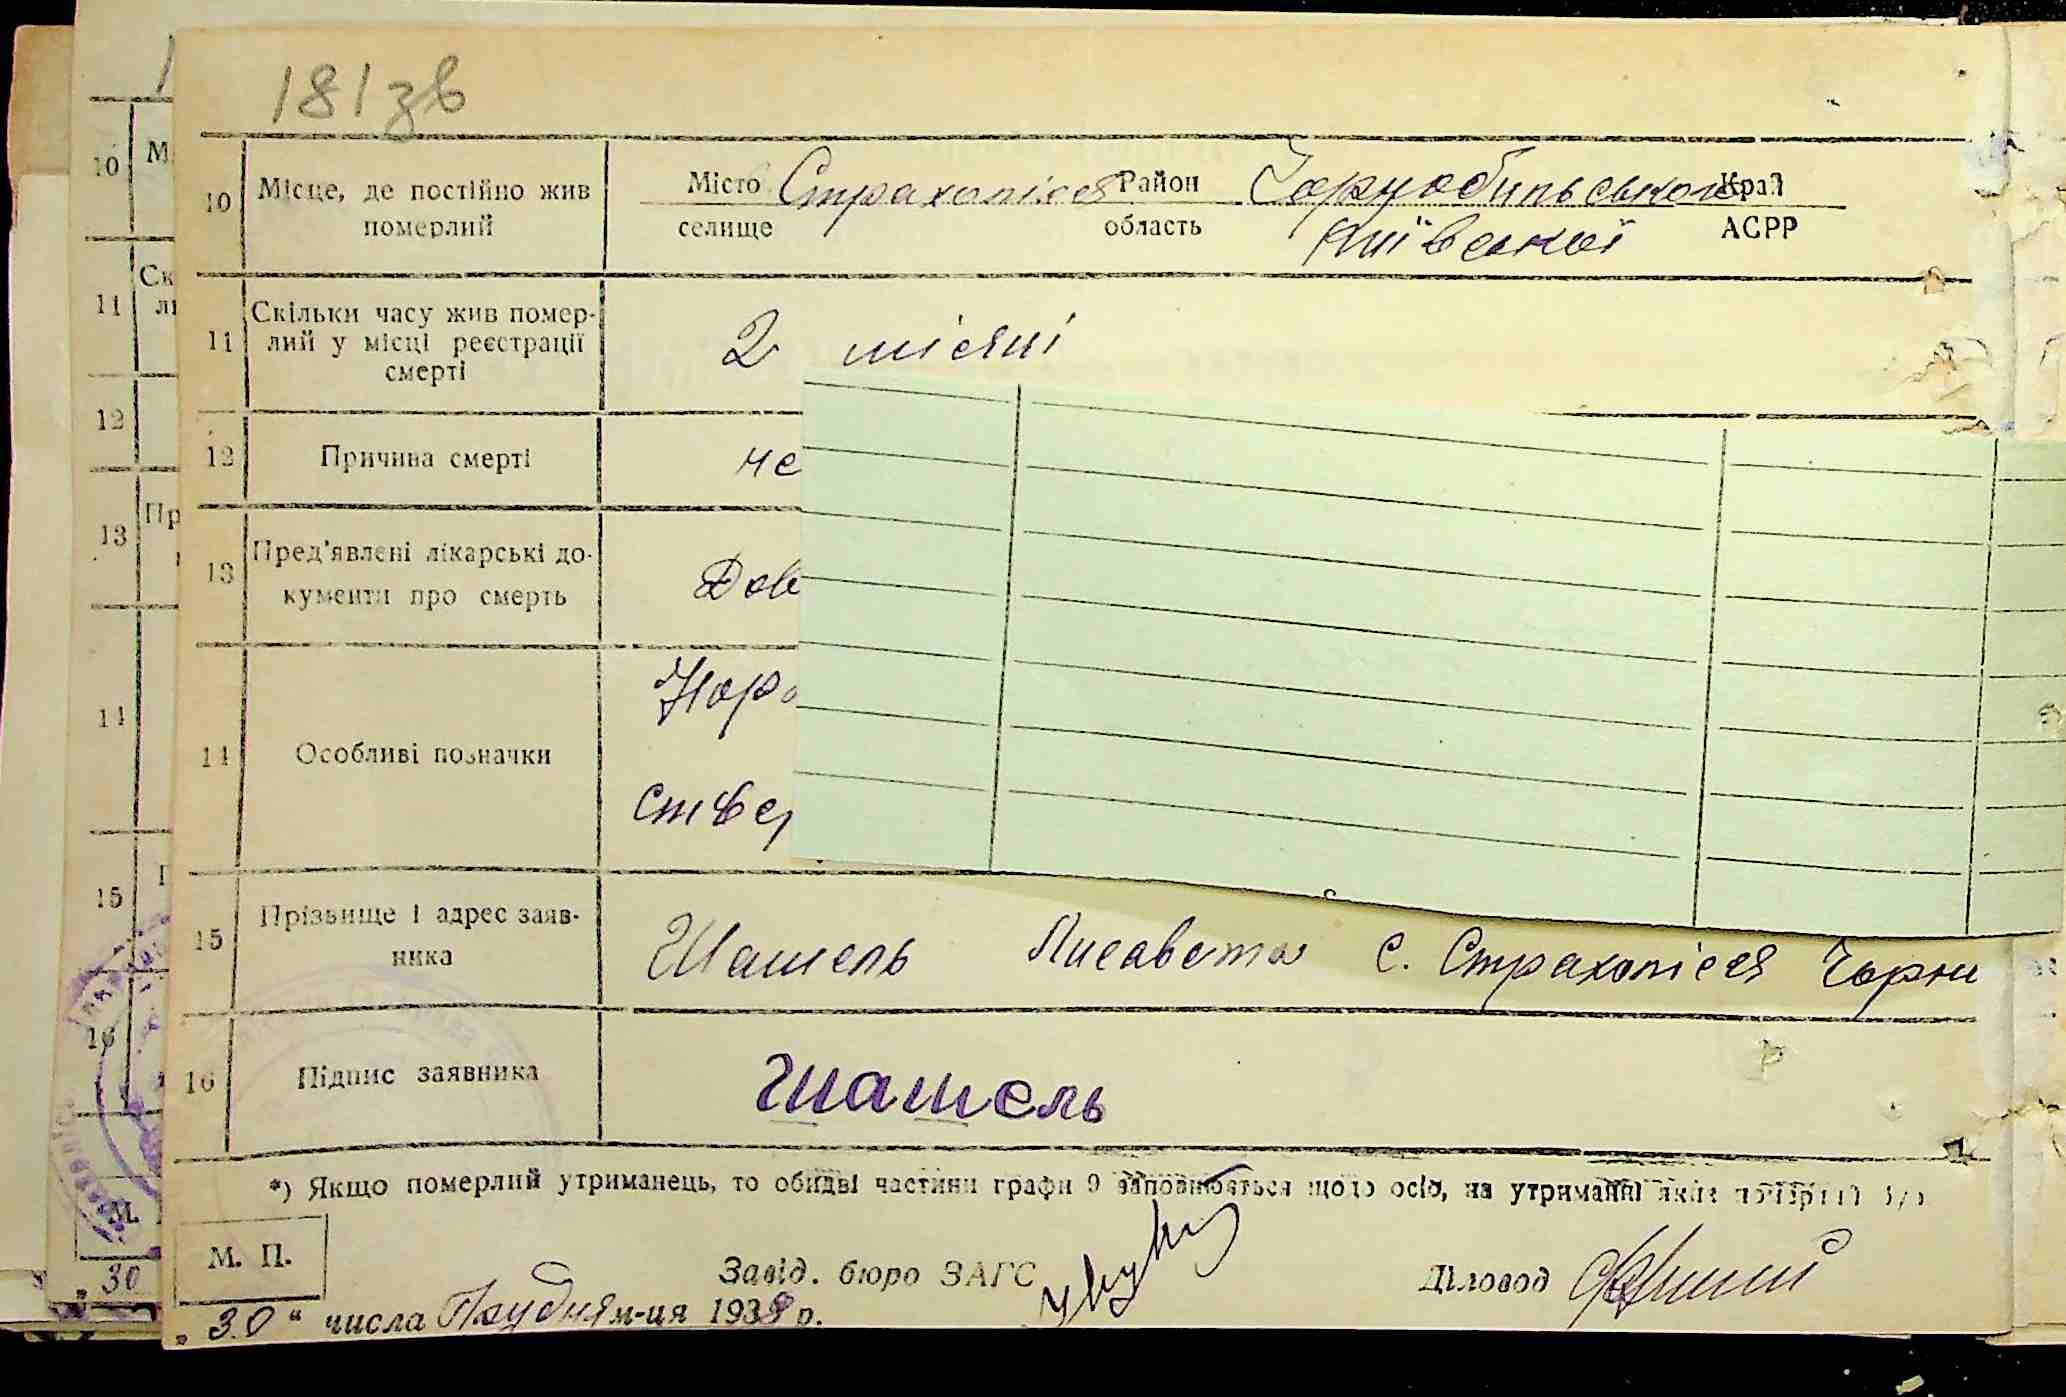 181зв
10 Місце, де постійно жив померлий
Місто Страхолісся Район Чорнобильського Край
селище область Київської АСРР
11 Скільки часу жив помер-
лий у місці реєстрації
смерті
2 місяці
12 Причина смерті
не
13 Пред'явлені лікарські до-
кументи про смерть
Дов
14 Особливі позначки
ствер
15 Прізвище і адрес заяв-
ника
Шашель Лисавета с. Страхолісся Чорни
16 Підпис заявника
Шашель
*) Якщо померлий утриманець, то обидві частини графи 9 заповнюється щодо осіб, на утриманні яких
М. П.
Завід. бюро ЗАГС
Діловод
"30" числа Грудня м-ця 1938 р.
10 М
11 Ск
ли
12
13 Пр
14
15
16
М.
"30